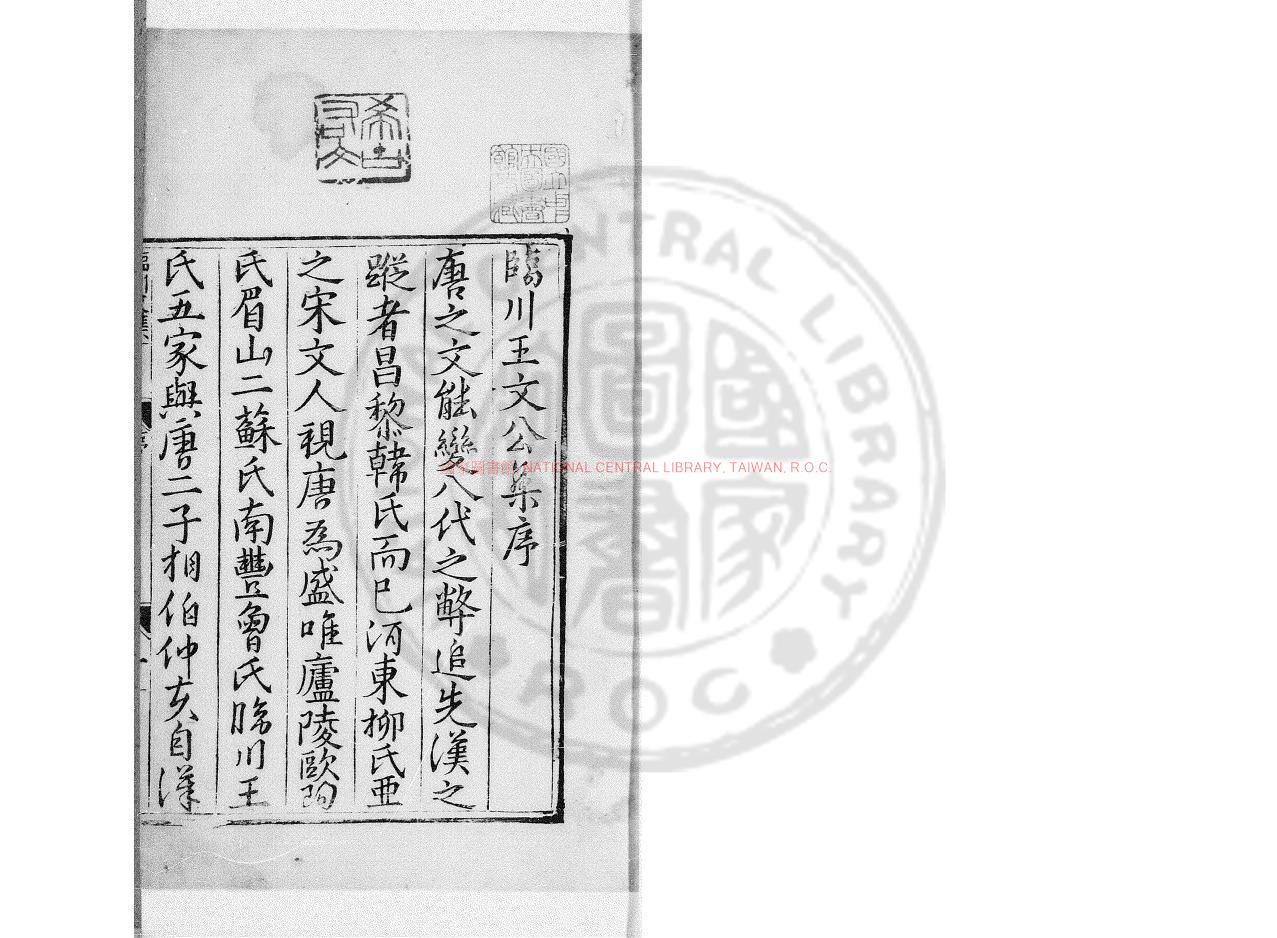 臨川王文公集序
唐之文能變八代之弊追先漢之
蹤者昌黎韓氏而已河東柳氏亞
之宋文人視唐為盛唯廬陵歐陽
氏眉山二蘇氏南豐曾氏臨川王
氏五家與唐二子相伯仲夫自漢
希古
右文
國家圖書館 NATIONAL CENTRAL LIBRARY, TAIWAN, R.O.C.
CENTRAL LIBRARY
ROC
國家
圖書